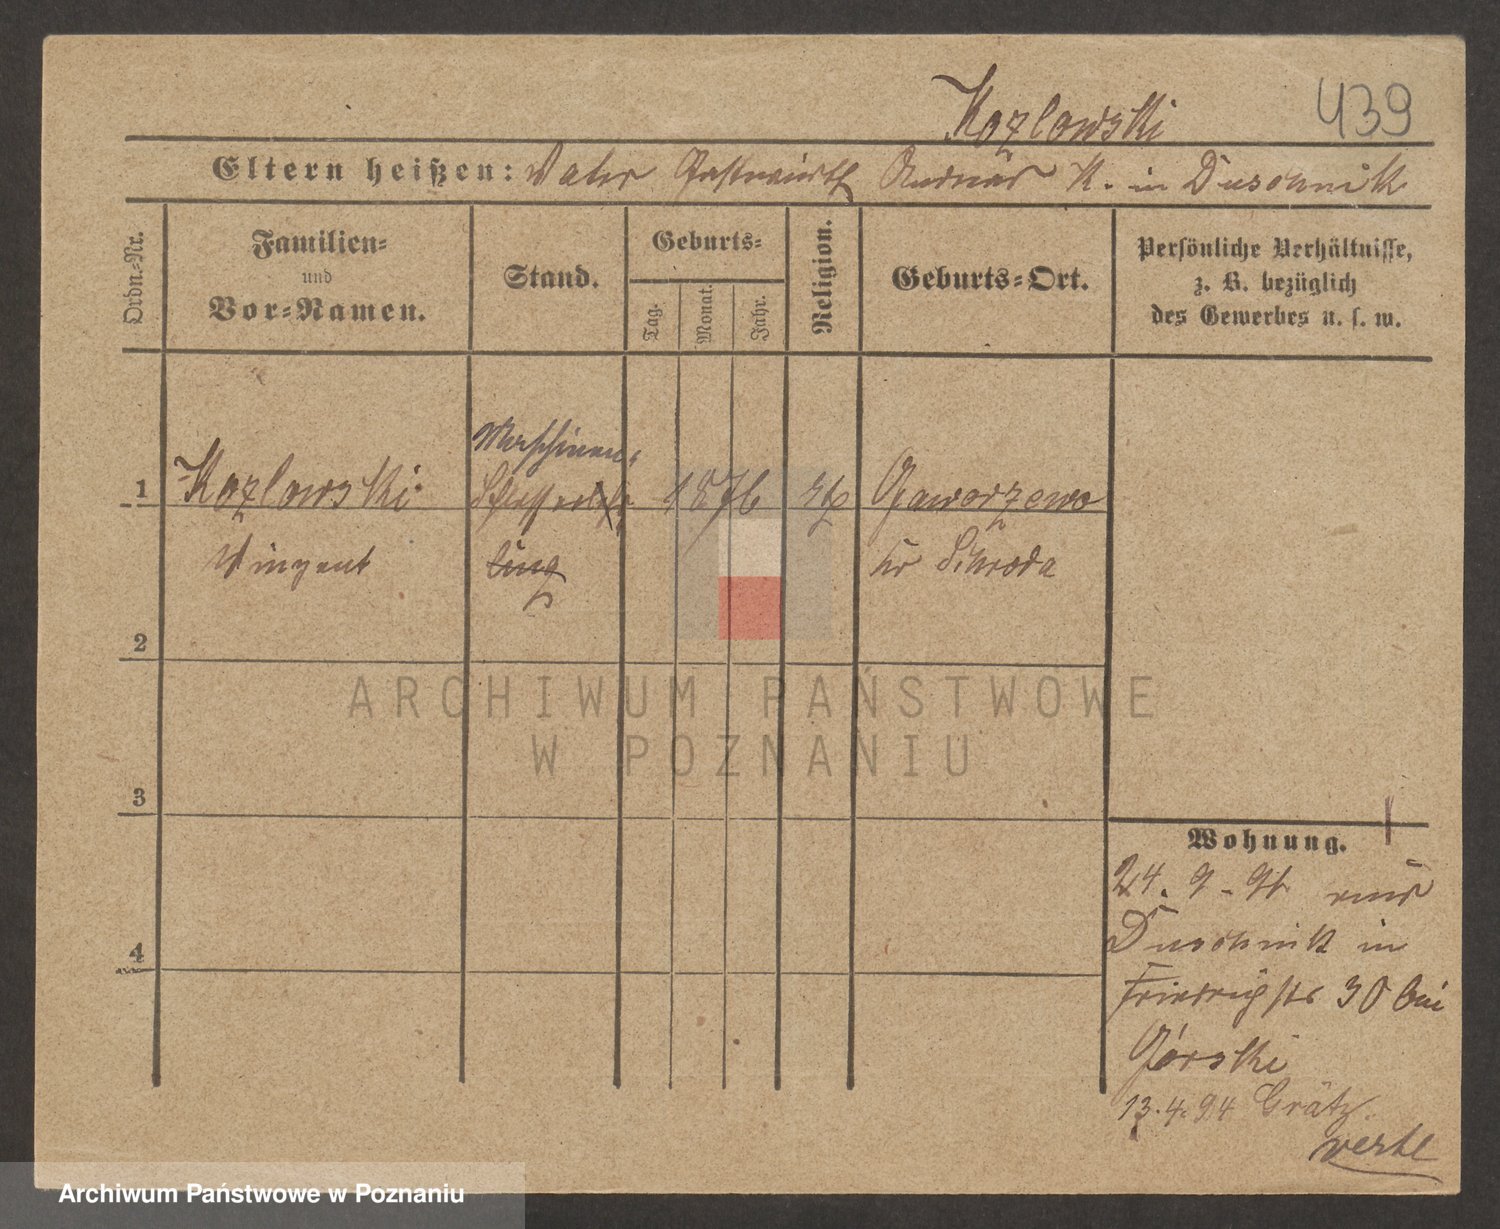 Kozlowski 439
Eltern heißen: Vater Gastwirth K. in Duschnik
Ordn.-Nr.
Familien-
und
Vor-Namen.
Stand.
Geburts-
Tag.
Monat.
Jahr.
Religion.
Geburts-Ort.
Persönliche Verhältnisse,
z. B. bezüglich
des Gewerbes u. s. w.
Maschinen-
1 Kozlowski 1876 kth Gaworzewo
ling
Vinzent Kr Schroda
2
3
4
Wohnung.
24. 9 - 91 aus
Duschnik in
Friedrichstr 30 bei
Górski
13.4.94 Grätz
verte
ARCHIWUM PAŃSTWOWE
W POZNANIU
Archiwum Państwowe w Poznaniu